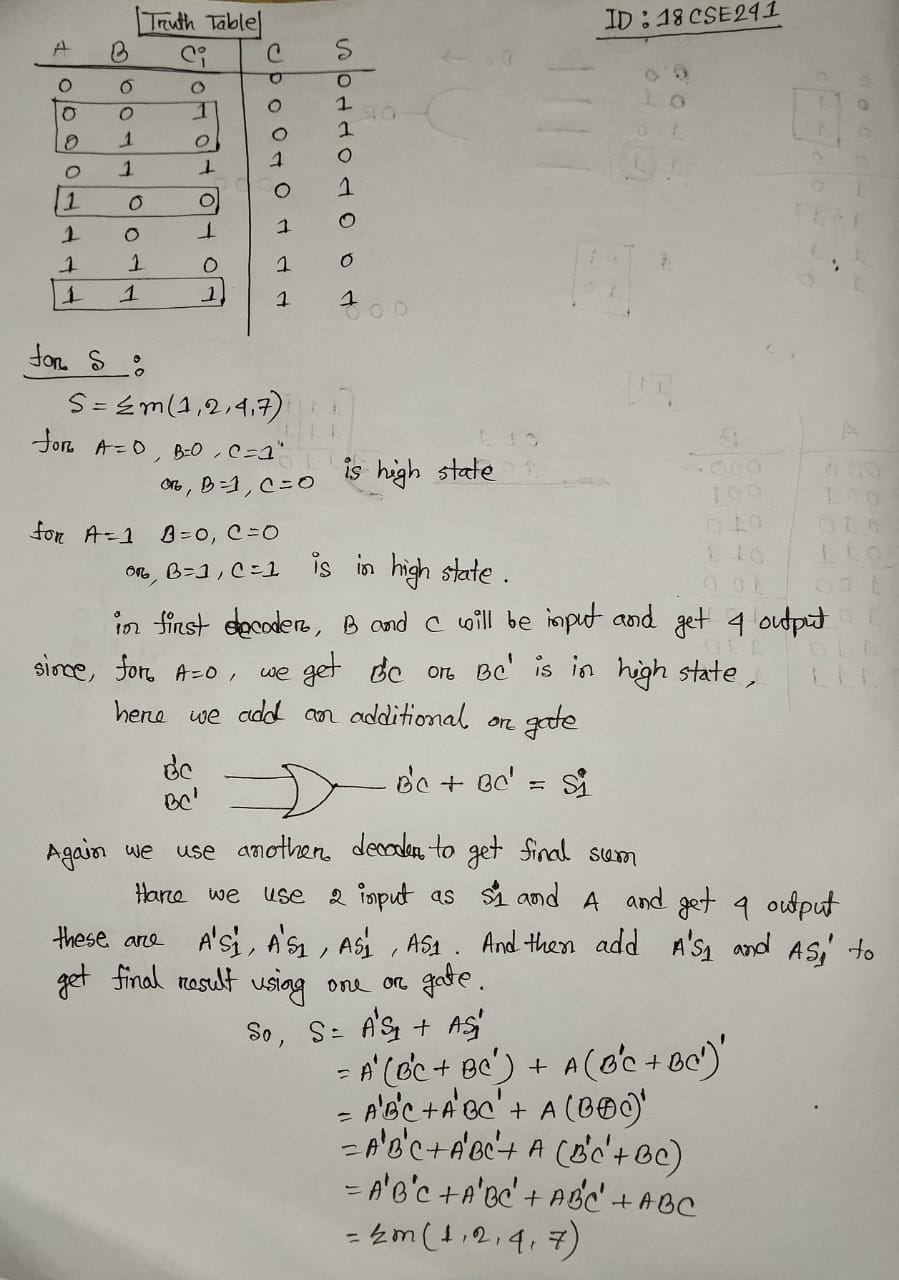 Truth Table
ID : 18CSE241
A B Ci C S
0 0 0 0 0
0 0 1 0 1
0 1 0 0 1
0 1 1 1 0
1 0 0 0 1
1 0 1 1 0
1 1 0 1 0
1 1 1 1 1
for S :
S = Σm(1,2,4,7)
for A=0, B=0, C=1
or, B=1, C=0 is high state
for A=1 B=0, C=0
or, B=1, C=1 is in high state.
in first decoder, B and C will be input and get 4 output
since, for A=0, we get B'C or BC' is in high state,
here we add an additional or gate
B'C
BC'
B'C + BC' = S1
Again we use another decoder to get final sum
Hare we use 2 input as S1 and A and get 4 output
these are A'S1', A'S1, AS1', AS1. And then add A'S1 and AS1' to
get final result using one or gate.
So, S = A'S1 + AS1'
= A'(B'C + BC') + A(B'C + BC')'
= A'B'C + A'BC' + A(B⊕C)'
= A'B'C + A'BC' + A(B'C' + BC)
= A'B'C + A'BC' + AB'C' + ABC
= Σm(1,2,4,7)